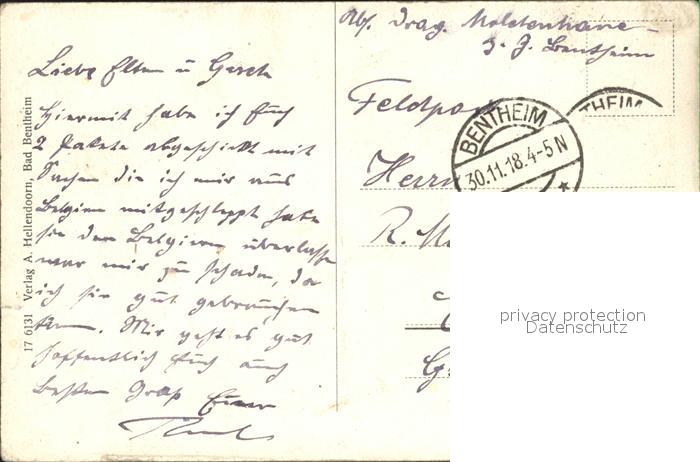 Abs. Drag. Moletenhaue
z. Z. Bentheim
Liebe Eltern u Gerete
Hiermit habe ich Euch
2 Pakete abgeschickt mit
Sachen die ich mir aus
Belgien mitgeschleppt habe
sie den Belgiern überlassen
war mir zu schade, da
ich sie gut gebrauchen
kann. Mir geht es gut
hoffentlich Euch auch
Besten Gruß Euer
Feldpost
BENTHEIM
30.11.18.4-5N
THEIM
Herrn
R. M
G
17 6131 Verlag A. Hellendoorn, Bad Bentheim
privacy protection
Datenschutz